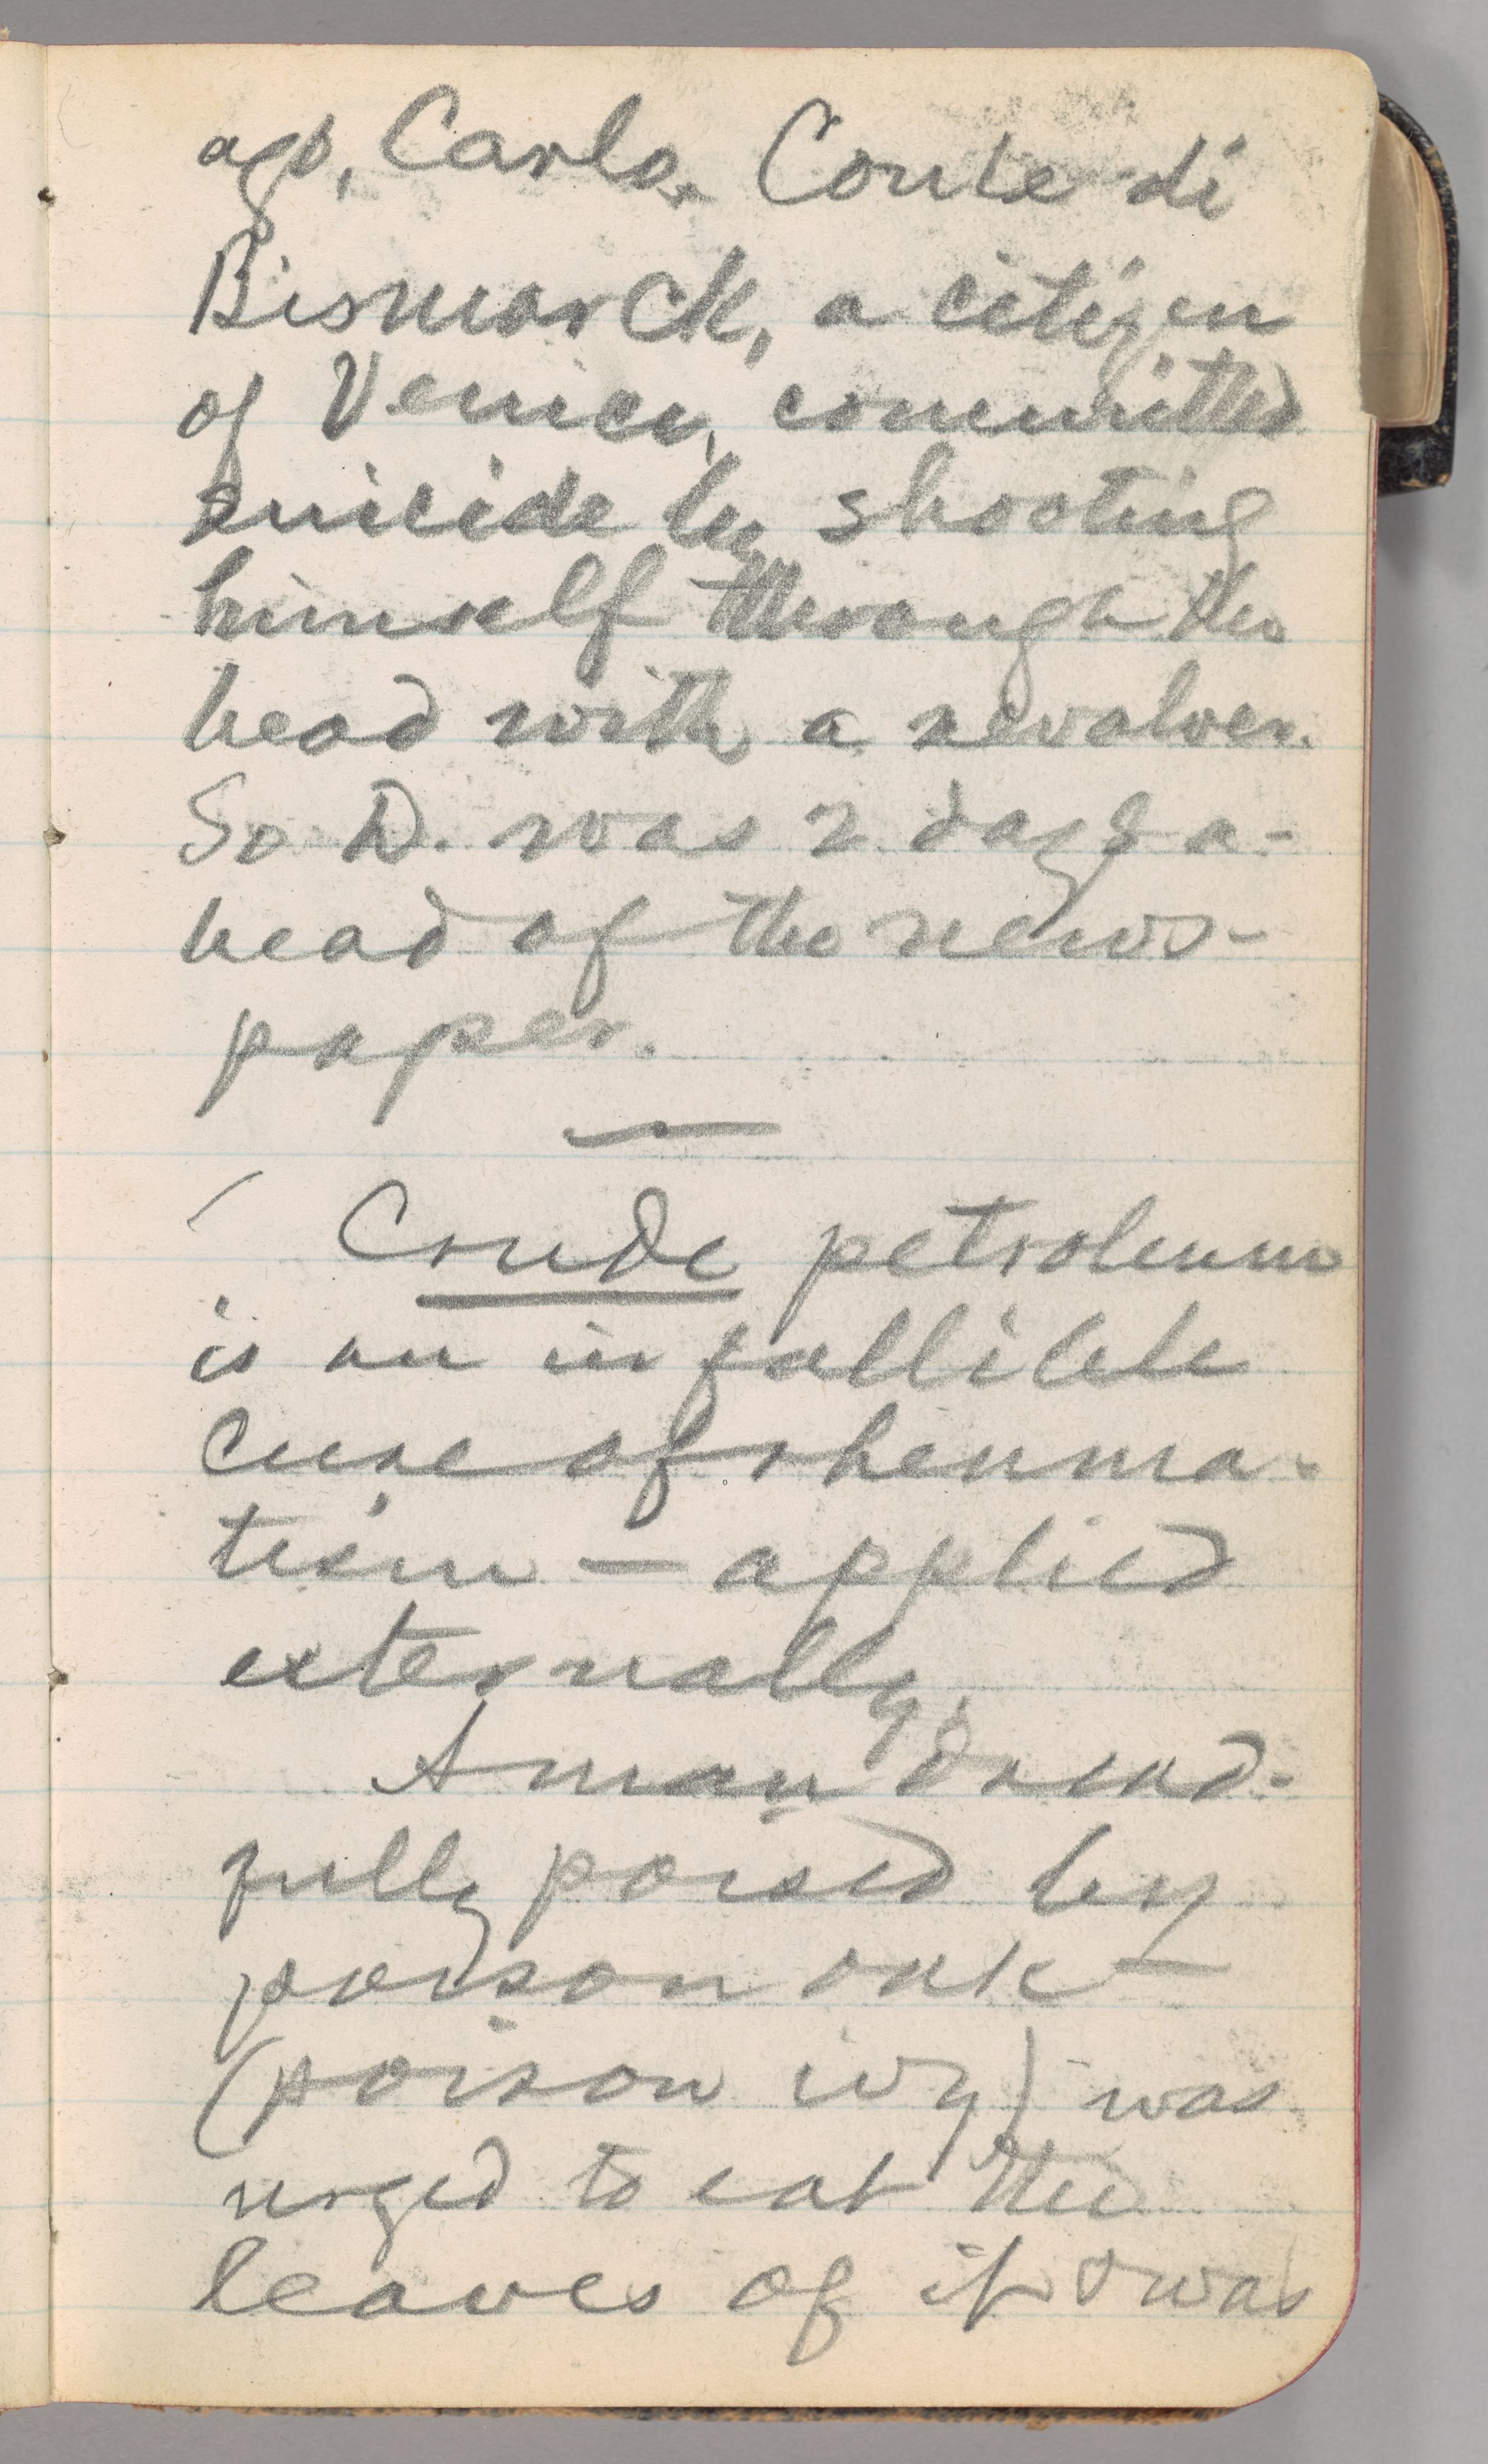 ago, Carlo, Conte di
Bismarck, a citizen
of Venice, committed
suicide by shooting
himself through the
head with a revolver.
So D. was 2 days a-
head of the news-
paper.
—
Crude petroleum
is an infallible
cure of rheuma-
tism — applied
externally.
A man dread-
fully poised by
poison oak —
(poison ivy) was
urged to eat the
leaves of it & was